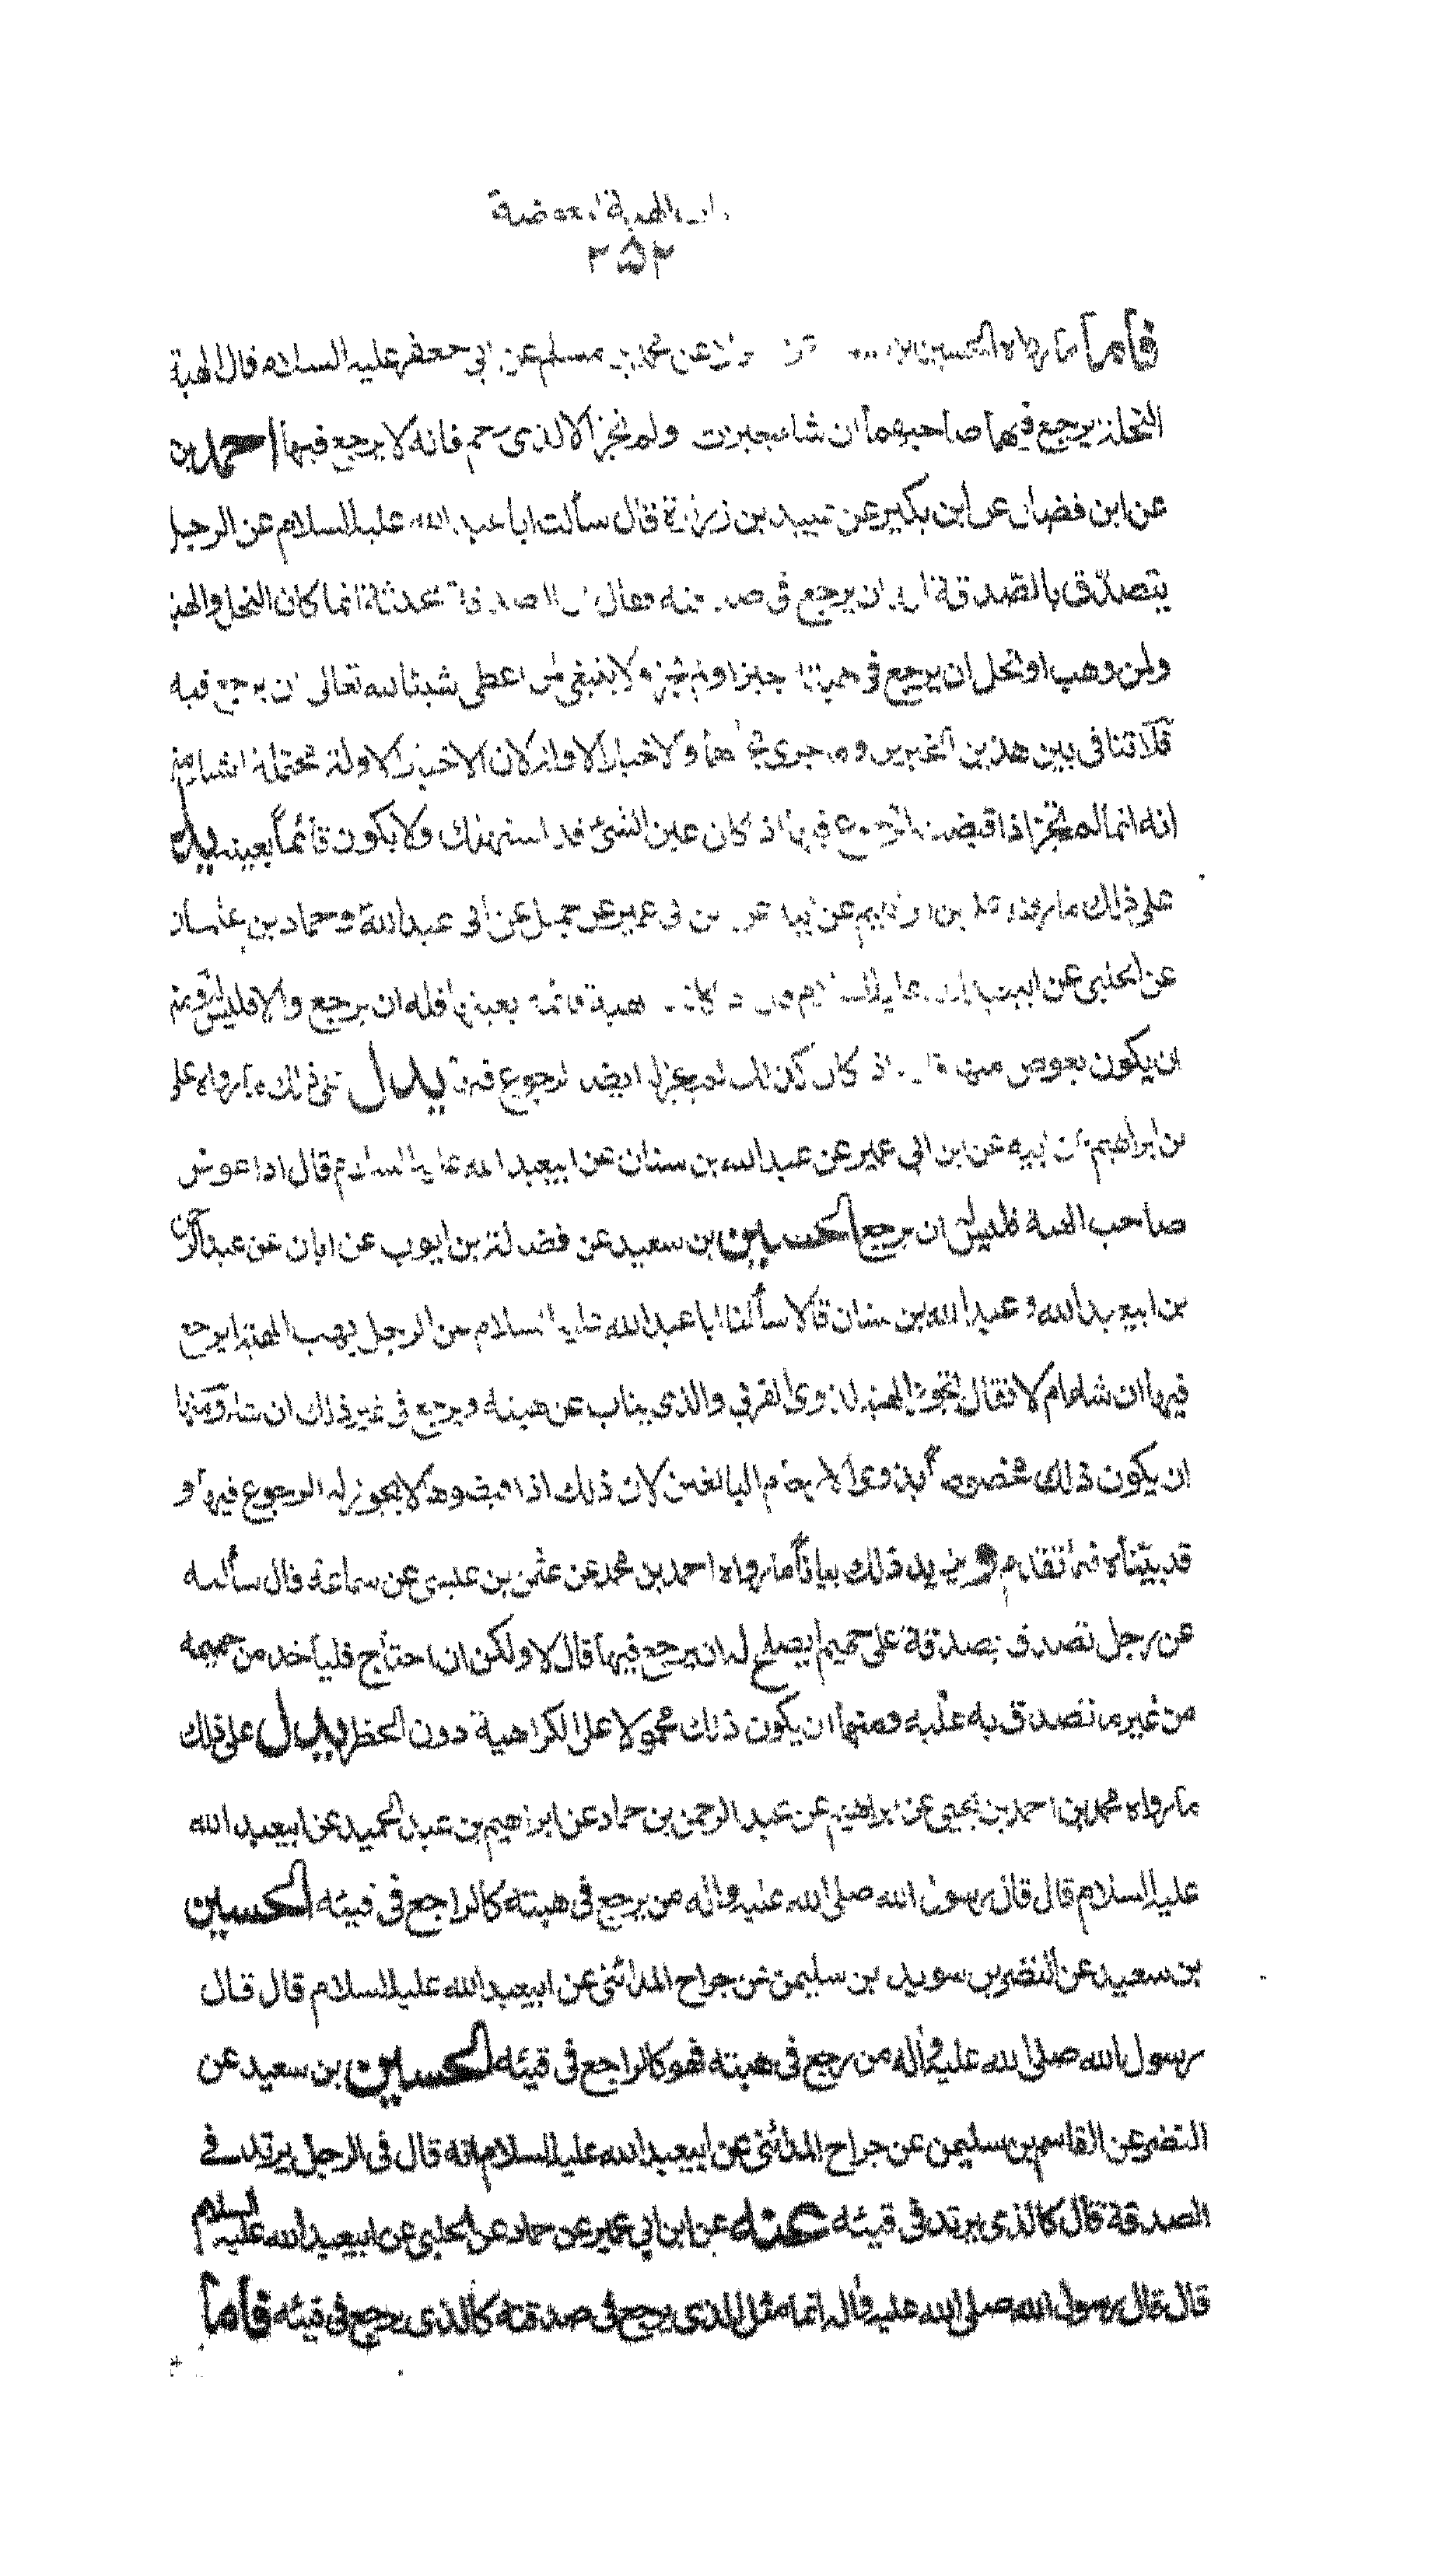 باب الهبة المقبوضة
٣٥٢
فأما ما رواه الحسين بن عن محمد بن مسلم عن ابي جعفر عليه السلام قال الهبة
النحلة يرجع فيها صاحبهما ان شاء حيزت ولم تجز الا لذى رحم فانه لا يرجع فيها احمد بن
عن ابن فضال عن ابن بكير عن عبيد بن زرارة قال سألت ابا عبد الله عليه السلام عن الرجل
يتصدّق بالصّدقة اله ان يرجع فى صدقته فقال ان الصدقة محدثة انما كان النحل والهبة
ولمن وهب او نحل ان يرجع فى هبته حيز او لم يُجز ولا ينبغى لمن اعطى شيئا لله تعالى ان يرجع فيه
فلا تنافى بين هذين الخبرين وما جرى مجراهما والاخبار الاولة لان الاخبار الاولة محتملة اشياء منها
انه انما لم يجز اذا قبضت الرجوع فيها اذ كان عين الشئ قد استهلك ولا يكون قائماً بعينه يدل
على ذلك ما رواه على بن ابراهيم عن ابيه عن ابن ابى عمير عن جميل عن ابى عبد الله وحماد بن عثمان
عن الحلبى عن ابيعبد الله عليه السلام قال اذا كانت هبة قائمة بعينها فله ان يرجع والا فليس له ومنها
ان يكون بعوض منها اذ كان كذلك لم يجز له ايضا الرجوع فيها يدل على ذلك ما رواه على
بن ابراهيم عن ابيه عن ابن ابى عمير عن عبد الله بن سنان عن ابيعبد الله عليه السلام قال اذا عوض
صاحب الهبة فليس له ان يرجع الحسين بن سعيد عن فضالة بن ايوب عن ابان عن عبد الرحمن
بن ابيعبد الله وعبد الله بن سنان قالا سألنا ابا عبد الله عليه السلام عن الرجل يهب الهبة ايرجع
فيها ان شاء ام لا فقال تجوز الهبة لذوى القربى والذى يثاب عن هبته ويرجع فى غير ذلك ان شاء ومنها
ان يكون ذلك مخصوصاً بذوى الارحام البالغين لان ذلك اذا قبضوها لا يجوز له الرجوع فيها و
قد بيّنّاه فيما تقدم ويزيد ذلك بياناً ما رواه احمد بن محمد عن عثمن بن عيسى عن سماعة قال سألته
عن رجل تصدق بصدقة على حميم أيصلح له ان يرجع فيها قال لا ولكن ان احتاج فليأخذ من حميمه
من غير ما تصدق به عليه ومنها ان يكون ذلك محمولا على الكراهية دون الحظر يدل على ذلك
ما رواه محمد بن احمد بن يحيى عن ابراهيم عن عبد الرحمن بن حماد عن ابراهيم بن عبد الحميد عن ابيعبد الله
عليه السلام قال قال رسول الله صلى الله عليه واله من يرجع فى هبته كالراجع فى قيئه الحسين
بن سعيد عن النضر بن سويد بن سليمن عن جراح المدائنى عن ابيعبد الله عليه السلام قال قال
رسول الله صلى الله عليه وآله من رجع فى هبته فهو كالراجع فى قيئه الحسين بن سعيد عن
النضر عن القاسم بن سليمن عن جراح المدائنى عن ابيعبد الله عليه السلام انه قال فى الرجل يرتد فى
الصدقة قال كالذى يرتد فى قيئه عنه عن ابن ابى عمير عن حماد عن الحلبى عن ابيعبد الله عليه السلام
قال قال رسول الله صلى الله عليه وآله انما مثل الذى يرجع فى صدقته كالذى يرجع فى قيئه فأما